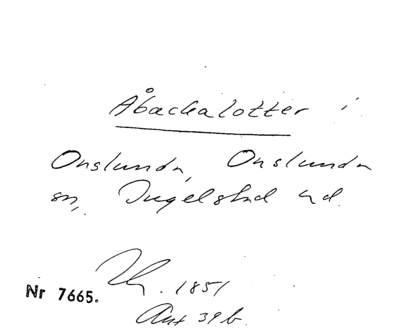 Åbackalotter i
Onslunda, Onslunda
sn, Ingelstad hd.
1851
Nr 7665.
Ant 39 b.